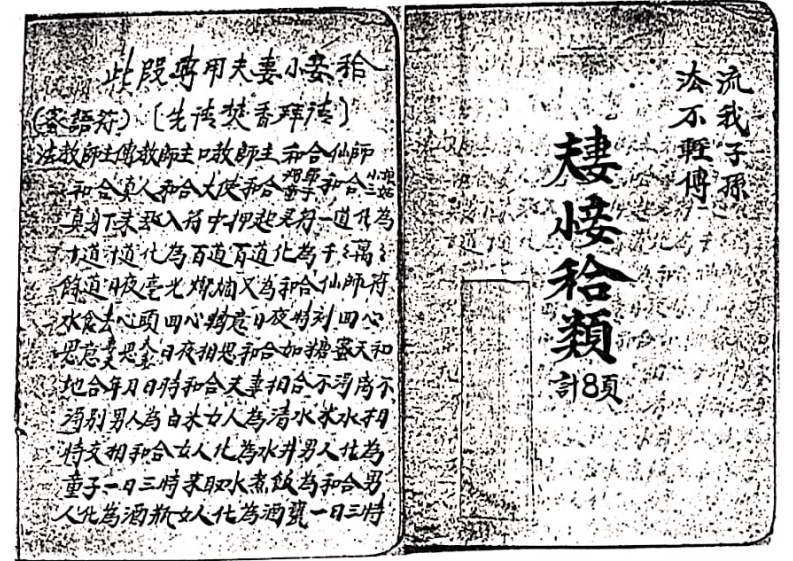 此段專用夫妻小姿秴
(蜜語符)〔先请焚香拜请〕
法教師主傳教師主口教師主和合仙師
和合真人和合大使和合童子和合
真身下來到入符中押起灵符一道化為
十道十道化為百道百道化為千々萬々
餘道日夜毫光燦爛又為和合仙師符
水食去心頭回心轉意日夜時刻回心
思意妻思夫日夜相思和合如糖蜜天和
地合年月日時和合夫妻相合不淂离不
淂别男人為白米女人為清水米水相
時交相和合女人化為水井男人化為
童子一日三時來取水煮飯為和合男
人化為酒瓶女人化為酒甕一日三時
流我子孫
法不輕傳
夫妻小姿秴類
計8頁